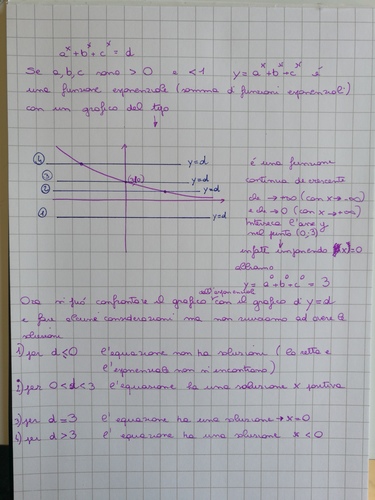 aˣ + bˣ + cˣ = d
Se a, b, c sono > 0 e < 1 y = aˣ + bˣ + cˣ è
una funzione esponenziale (somma di funzioni esponenziali)
con un grafico del tipo
4 y=d
3 (3;0) y=d
2 y=d
1 y=d
è una funzione
continua decrescente
che → +∞ (con x → -∞)
e che → 0 (con x → +∞)
interseca l'asse y
nel punto (0,3)
infatti imponendo x = 0
abbiamo
y = a⁰ + b⁰ + c⁰ = 3
dell'esponenziale
Ora si può confrontare il grafico con il grafico di y=d
e fare alcune considerazioni ma non riusciamo ad avere le
soluzioni
1) per d ≤ 0 l'equazione non ha soluzioni (la retta e
l'esponenziale non si incontrano)
2) per 0 < d < 3 l'equazione ha una soluzione x positiva
3) per d = 3 l'equazione ha una soluzione → x = 0
4) per d > 3 l'equazione ha una soluzione x < 0